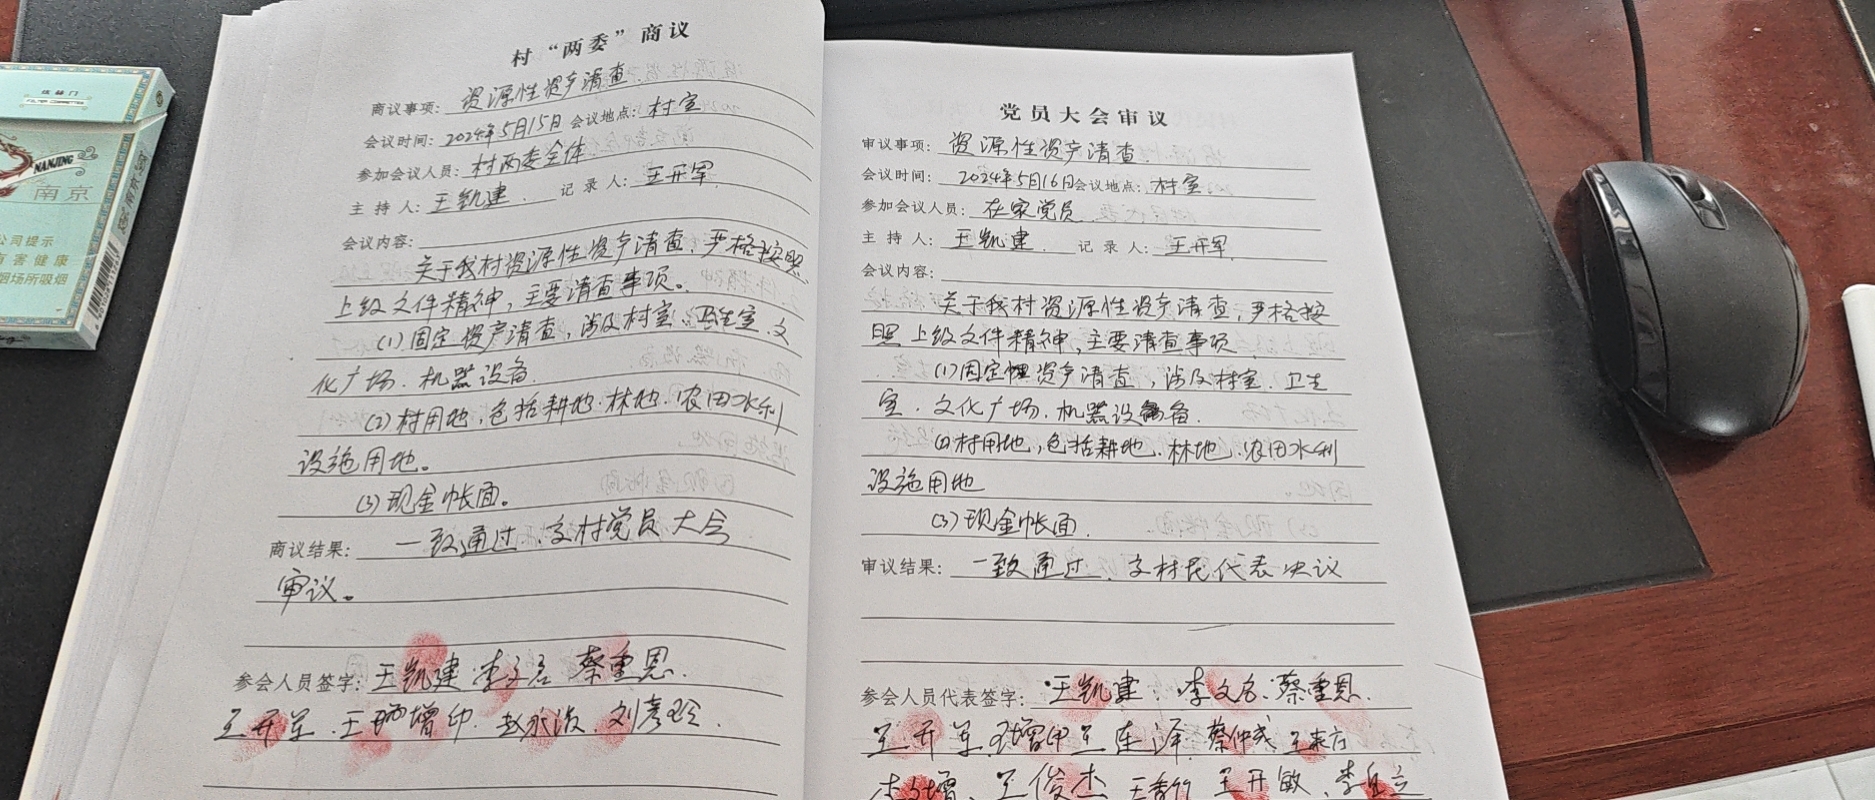 NANJING
南京
公司提示
有害健康
烟场所吸烟
村“两委”商议
商议事项: 资源性资产清查.
会议时间: 2024年5月15日 会议地点: 村室
参加会议人员: 村两委全体
主持人: 王凯建. 记录人: 王开军.
会议内容:
关于我村资源性资产清查,严格按照
上级文件精神,主要清查事项。
(1)固定资产清查,涉及村室、卫生室、文
化广场、机器设备
(2)村用地,包括耕地.林地.农田水利
设施用地。
(3)现金帐面。
商议结果: 一致通过,交村党员大会
审议。
参会人员签字: 王凯建 李文启 蔡重恩.
王开军.王增印.赵永波.刘彦玲.
党员大会审议
审议事项: 资源性资产清查.
会议时间: 2024年5月16日 会议地点: 村室
参加会议人员: 在家党员
主持人: 王凯建. 记录人: 王开军.
会议内容:
关于我村资源性资产清查,严格按
照上级文件精神,主要清查事项
(1)固定资产清查,涉及村室.卫生
室.文化广场.机器设备.
(2)村用地,包括耕地.林地.农田水利
设施用地
(3)现金帐面.
审议结果: 一致通过,交村民代表决议
参会人员代表签字: 王凯建.李文启.蔡重恩.
王开军 王增印 王东泽 蔡仲武
王俊杰 王开敏.